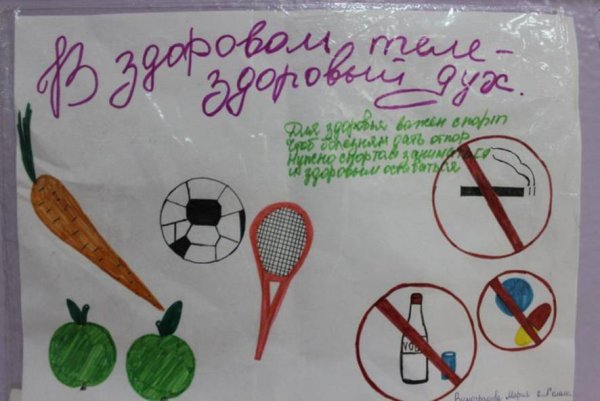 В здоровом теле-
здоровый дух.
Для здоровья важен спорт
Чтоб болезням дать отпор
Нужно спортом заниматься
и здоровым оставаться
VOD
Мария